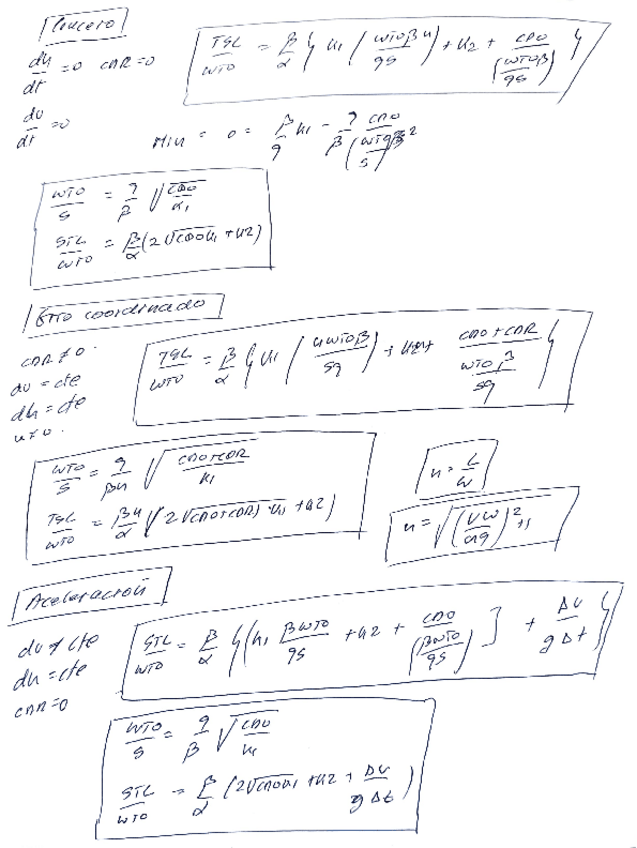 Crucero
dh/dt = 0 CDR = 0
TSL/WTO = β/α { K1 (WTO β u / qS) + K2 + CDO / (WTO β / qS) }
dv/dt = 0
Min = 0 = β/q K1 - q/β CDO / (WTO / S)^2
WTO/S = q/β √(CDO/α1)
STL/WTO = β/α (2√CDOK1 + K2)
Giro coordinado
CDR ≠ 0.
dv = cte
dh = cte
u ≠ 0.
TSL/WTO = β/α { K1 (u WTO β / Sq) + K2 + CDO + CDR / (WTO β / Sq) }
WTO/S = q/βu √(CDO+CDR / K1)
TSL/WTO = βu/α (2√(CDO+CDR) K1 + K2)
n = L/W
n = √((VW/g)^2 + 1)
Aceleración
dv ≠ cte
dh = cte
CDR = 0
STL/WTO = β/α {(K1 βWTO/qS + K2 + CDO / (βWTO/qS) ] + ΔV/gΔt }
WTO/S = q/β √(CDO/K1)
STL/WTO = β/α (2√CDOK1 + K2 + ΔV/gΔt)